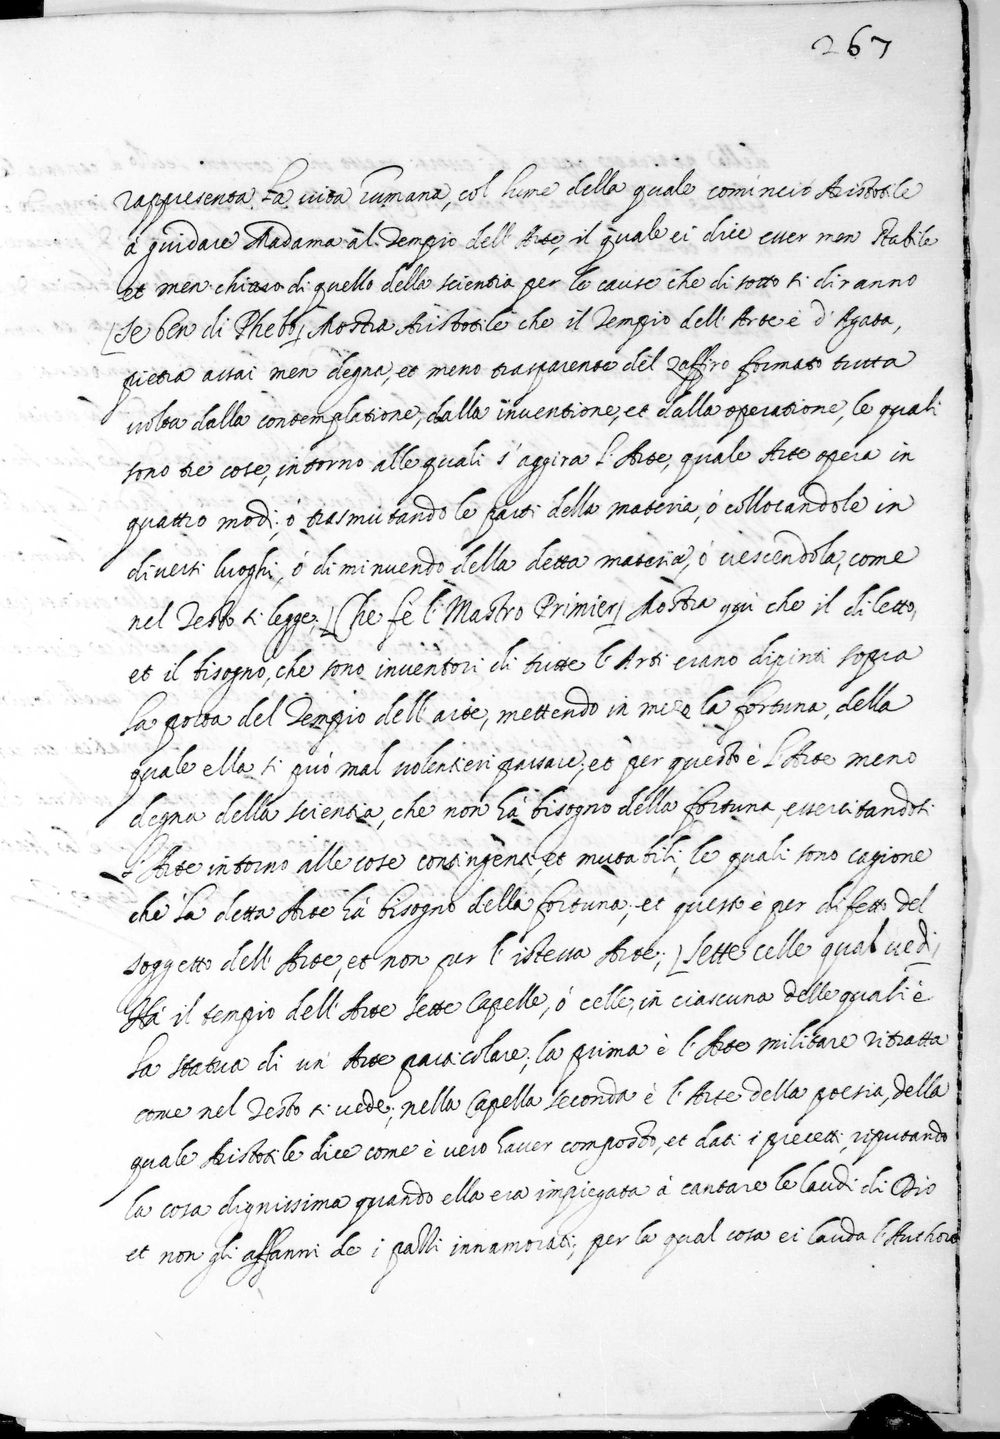 267
rappresenta la vita humana, col lume della quale cominciò Aristotile
à guidare Madama al Tempio dell'Arte, il quale ei dice esser men stabile
et men chiaro di quello della scientia per le cause che di sotto si diranno
[Se ben di Phebo] Mostra Aristotile che il Tempio dell'Arte è d'Agata,
pietra assai men degna, et meno trasparente del Zaffiro formato tutta
volta dalla contemplatione, dalla inventione, et dalla operatione, le quali
sono tre cose, intorno alle quali s'aggira l'Arte, quale Arte opera in
quattro modi; ò trasmutando le parti della materia, ò collocandole in
diversi luoghi, ò diminuendo della detta materia, ò crescendola, come
nel Testo si legge; [Che fè l'Mastro Primier] Mostra qui che il diletto,
et il bisogno, che sono inventori di tutte l'Arti erano dipinti sopra
la porta del Tempio dell'arte, mettendo in mezo la fortuna, della
quale ella si può mal volentieri passare; et per questo è l'Arte meno
degna della scientia, che non hà bisogno della fortuna, essercitandosi
l'Arte intorno alle cose contingenti, et mutabili, le quali sono cagione
che la detta Arte hà bisogno della fortuna; et questo è per difetto del
soggetto dell'Arte, et non per l'istessa Arte; [Sette celle qual vedi]
Hà il tempio dell'Arte sette Capelle, ò celle, in ciascuna delle quali è
la statua di un'Arte particolare; la prima è l'Arte militare ritratta
come nel Testo si vede; nella Capella seconda è l'Arte della poesia, della
quale Aristotile dice come è vero haver composto, et dati i precetti, riputando
la cosa dignissima quando ella era impiegata à cantare le laudi di Dio
et non gli affanni de i folli innamorati; per la qual cosa ei lauda l'Authore